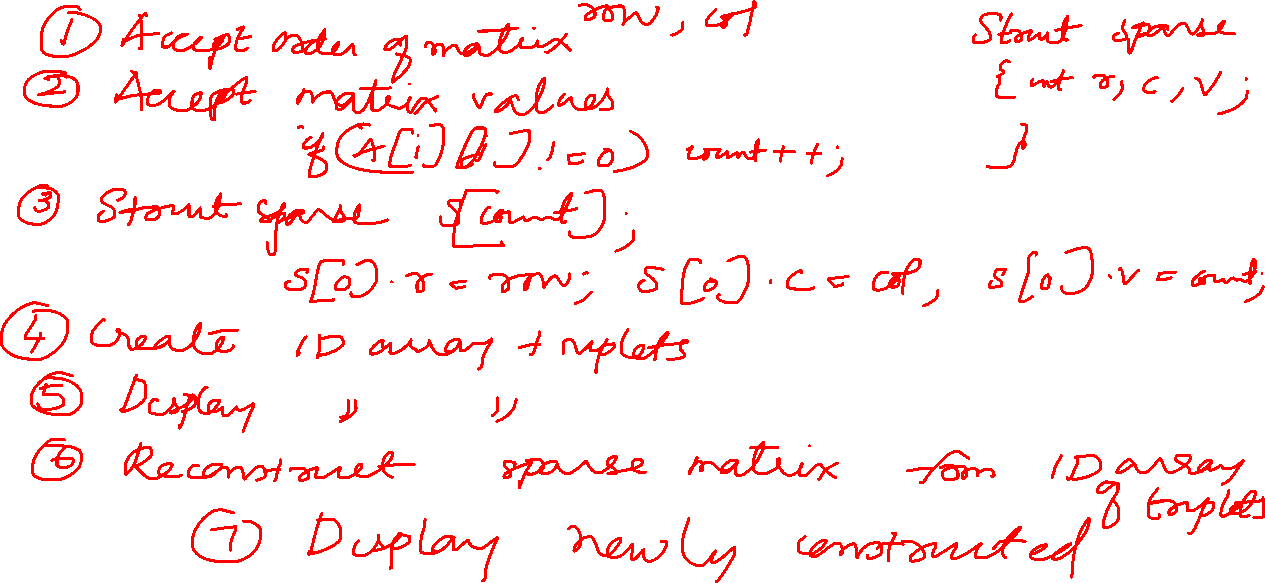 ① Accept order of matrix row, col
② Accept matrix values
if (A[i][j] != 0) count++;
Struct sparse
{ int r, c, v;
}
③ Struct sparse S[count];
S[0].r = row; S[0].c = col, S[0].v = count;
④ Create 1D array triplets
⑤ Display " "
⑥ Reconstruct sparse matrix from 1D array of triplets
⑦ Display newly constructed